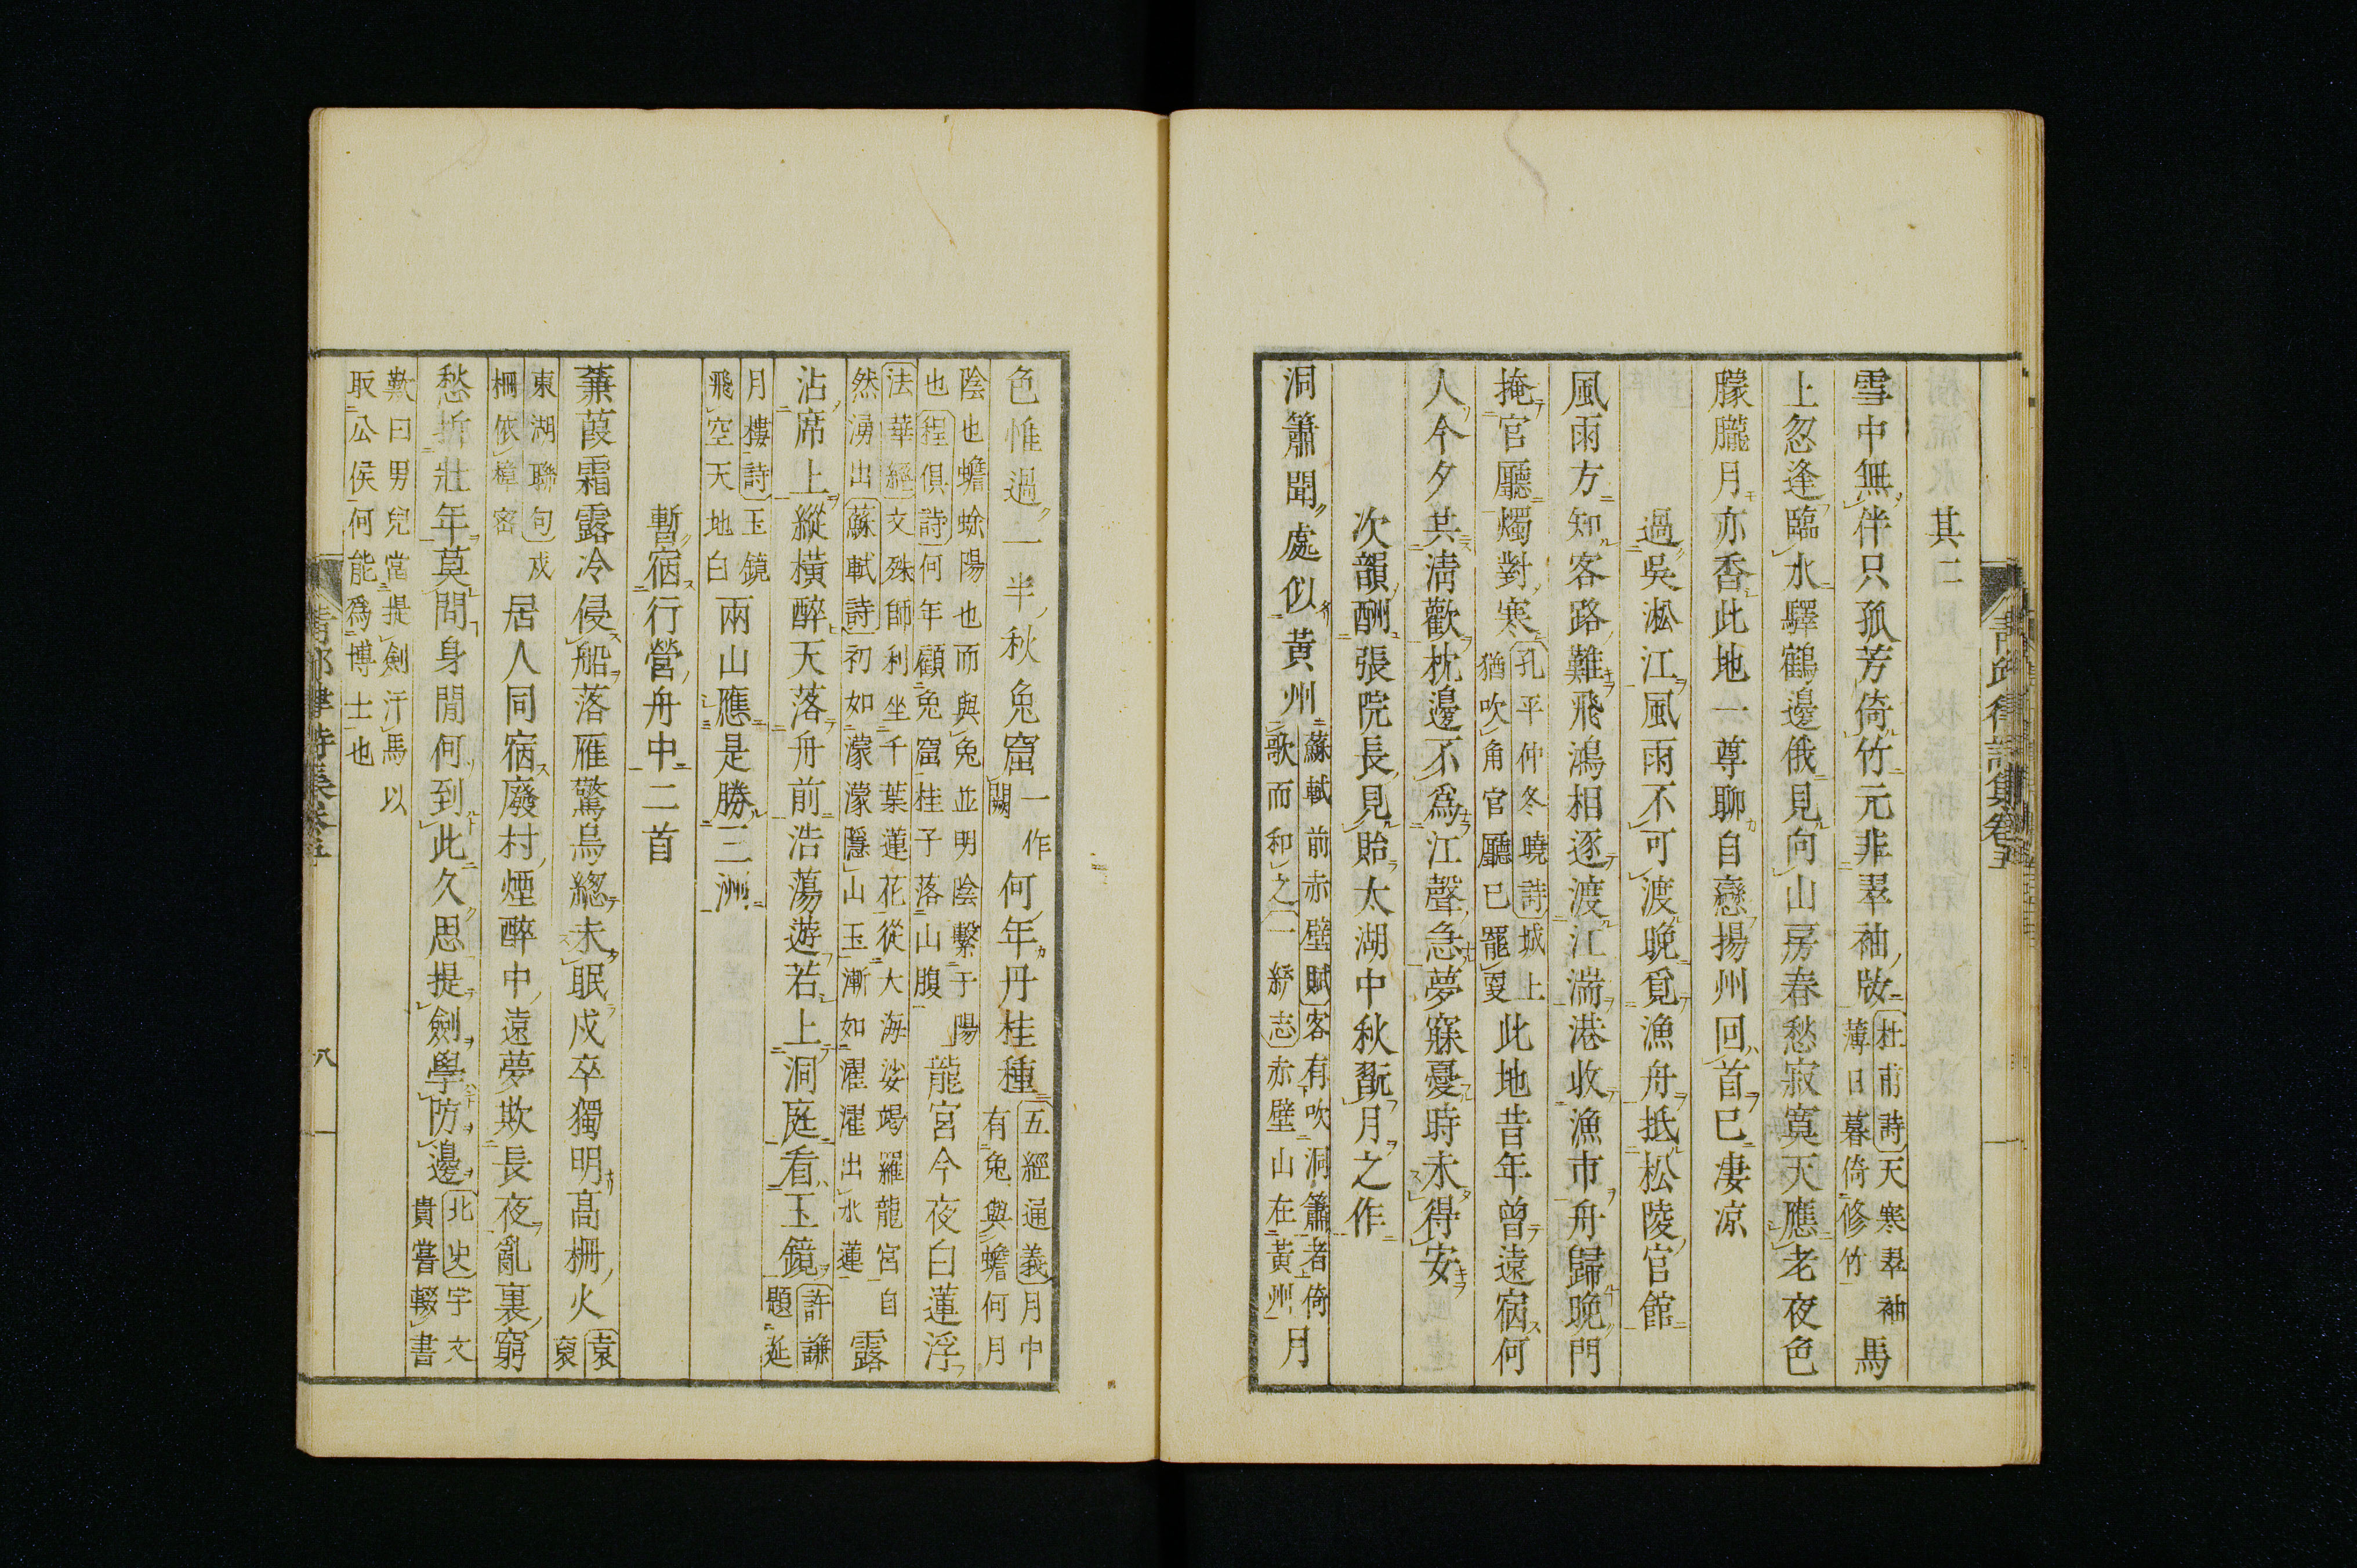 其二
雪中無伴只孤芳倚竹元非翠袖粧杜甫詩天寒翠袖薄日暮倚修竹馬
上忽逢臨水驛鶴邊俄見向山房春愁寂寞天應老夜色
朦朧月亦香此地一尊聊自戀揚州回首已凄凉
過吳淞江風雨不可渡晚覓漁舟抵松陵官館
風雨方知客路難飛鴻相逐渡江湍港收漁市舟歸晚門
掩官廳燭對寒孔平仲冬曉詩城上猶吹角官廳已罷更此地昔年曾遠宿何
人今夕共淸歡枕邊不爲江聲急夢寐憂時未得安
次韻酬張院長見貽太湖中秋翫月之作
洞簫聞處似黃州蘇軾前赤壁賦客有吹洞簫者倚歌而和之一綂志赤壁山在黃州月
色惟過一半秋兔窟一作闕何年丹桂種五經通義月中有兔與蟾何月
陰也蟾蜍陽也而與兔並明陰繫于陽也程俱詩何年顧兔窟桂子落山腹龍宮今夜白蓮浮
法華經文殊師利坐千葉蓮花從大海娑竭羅龍宮自然湧出蘇軾詩初如濛濛隱山玉漸如濯濯出水蓮露
沾席上縱橫醉天落舟前浩蕩遊若上洞庭看玉鏡許謙題延
月樓詩玉鏡飛空天地白兩山應是勝三洲
暫宿行營舟中二首
蒹葭霜露冷侵船落雁驚烏緫未眠戍卒獨明高柵火袁裒
東湖聯句戍柵依樟密居人同宿廢村煙醉中遠夢欺長夜亂裏窮
愁折壯年莫問身閒何到此久思提劍學防邊北史宇文貴嘗輟書
歎曰男兒當提劍汗馬以取公侯何能爲博士也
八